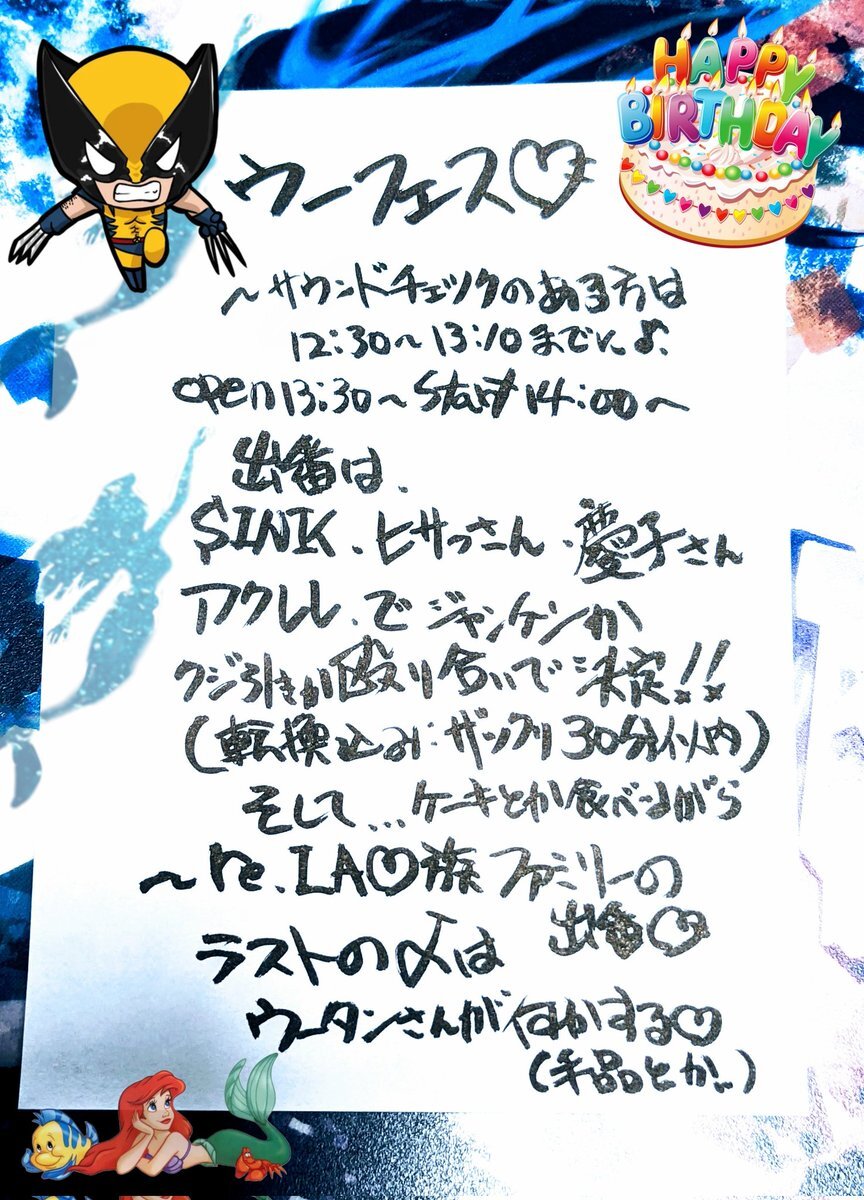 HAPPY
BIRTHDAY
ウーフェス♡
~サウンドチェックのある方は
12:30~13:10までに♪.
open13:30~Start14:00~
出番は、
SINK、ヒサっさん、慶子さん
アクレレ、でジャンケンか
クジ引きか殴り合いで決定!!
(転換込みザックリ30分以内)
そして...ケーキとか食べながら
~re.LA♡族ファミリーの
出番♡
ラストの〆は
ウータンさんが何かする♡
(手品とか..)